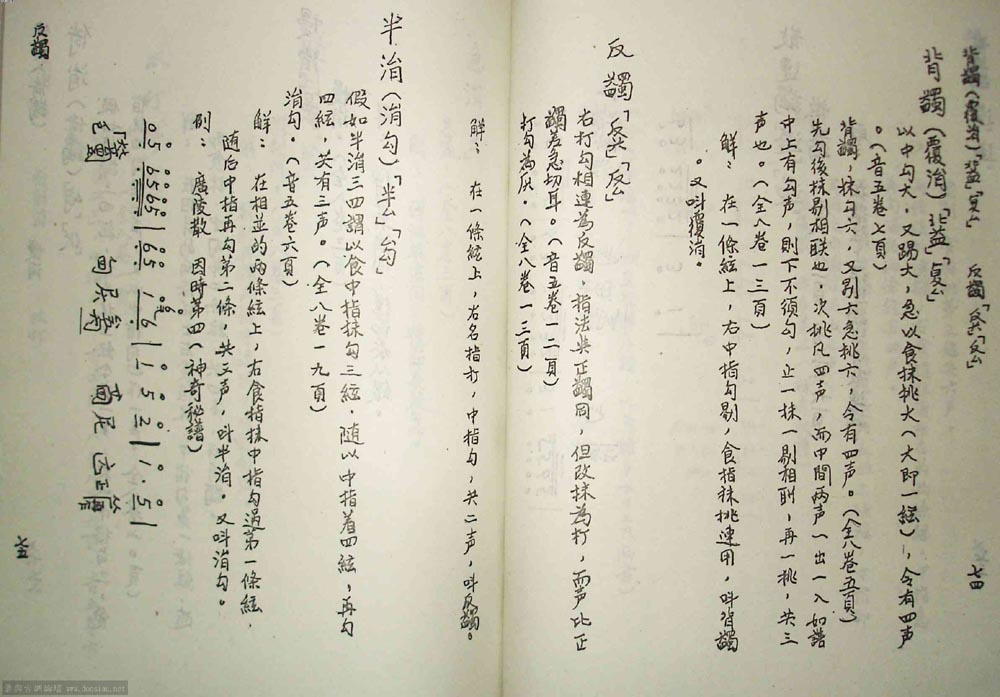 背蠲（覆涓）
反蠲
七四
背蠲（覆涓）
以中勾大，又踢大，急以食抹挑大（大即一絃），令有四声
。（音五卷七頁）
背蠲，抹勾六，又剔六急挑六，令有四声。（仝八卷五頁）
先勾後抹剔相联也，次挑凡四声，而中間两声一出一入如譜
中上有勾声，則下不須勾，止一抹一剔相附，再一挑，共三
声也。（仝八卷一三頁）
解： 在一條絃上，右中指勾剔，食指抹挑連用，叫背蠲
。又叫覆涓。
反蠲
右打勾相連為反蠲，指法與正蠲同，但改抹為打，而声比正
蠲差急切耳。（音五卷一二頁）
打勾為反。（仝八卷一三頁）
解： 在一條絃上，右名指打，中指勾，共二声，叫反蠲。
半涓（涓勾）
假如半涓三四謂以食中指抹勾三絃，随以中指着四絃，再勾
四絃，共有三声。（仝八卷一九頁）
涓勾。（音五卷六頁）
解： 在相並的两條絃上，右食指抹中指勾過第一條絃，
随后中指再勾第二條，共三声，叫半涓。又叫涓勾。
例： 廣陵散 因時第四（神奇秘譜）
05 6565 | 65 1 6 | 1 5 2 | 1 · 5 |
七五
反蠲
www.donsian.net